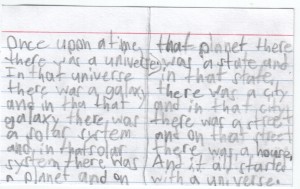 Once upon a time,
there was a universe,
In that universe
there was a galaxy
and in tha that
galaxy there was
a solar system
and in that solar
system there was
a planet and on
that planet there
was a state and
in that state,
there was a city
and in that city
there was a street
and on that street
there was a house.
And it all started
with a universe.